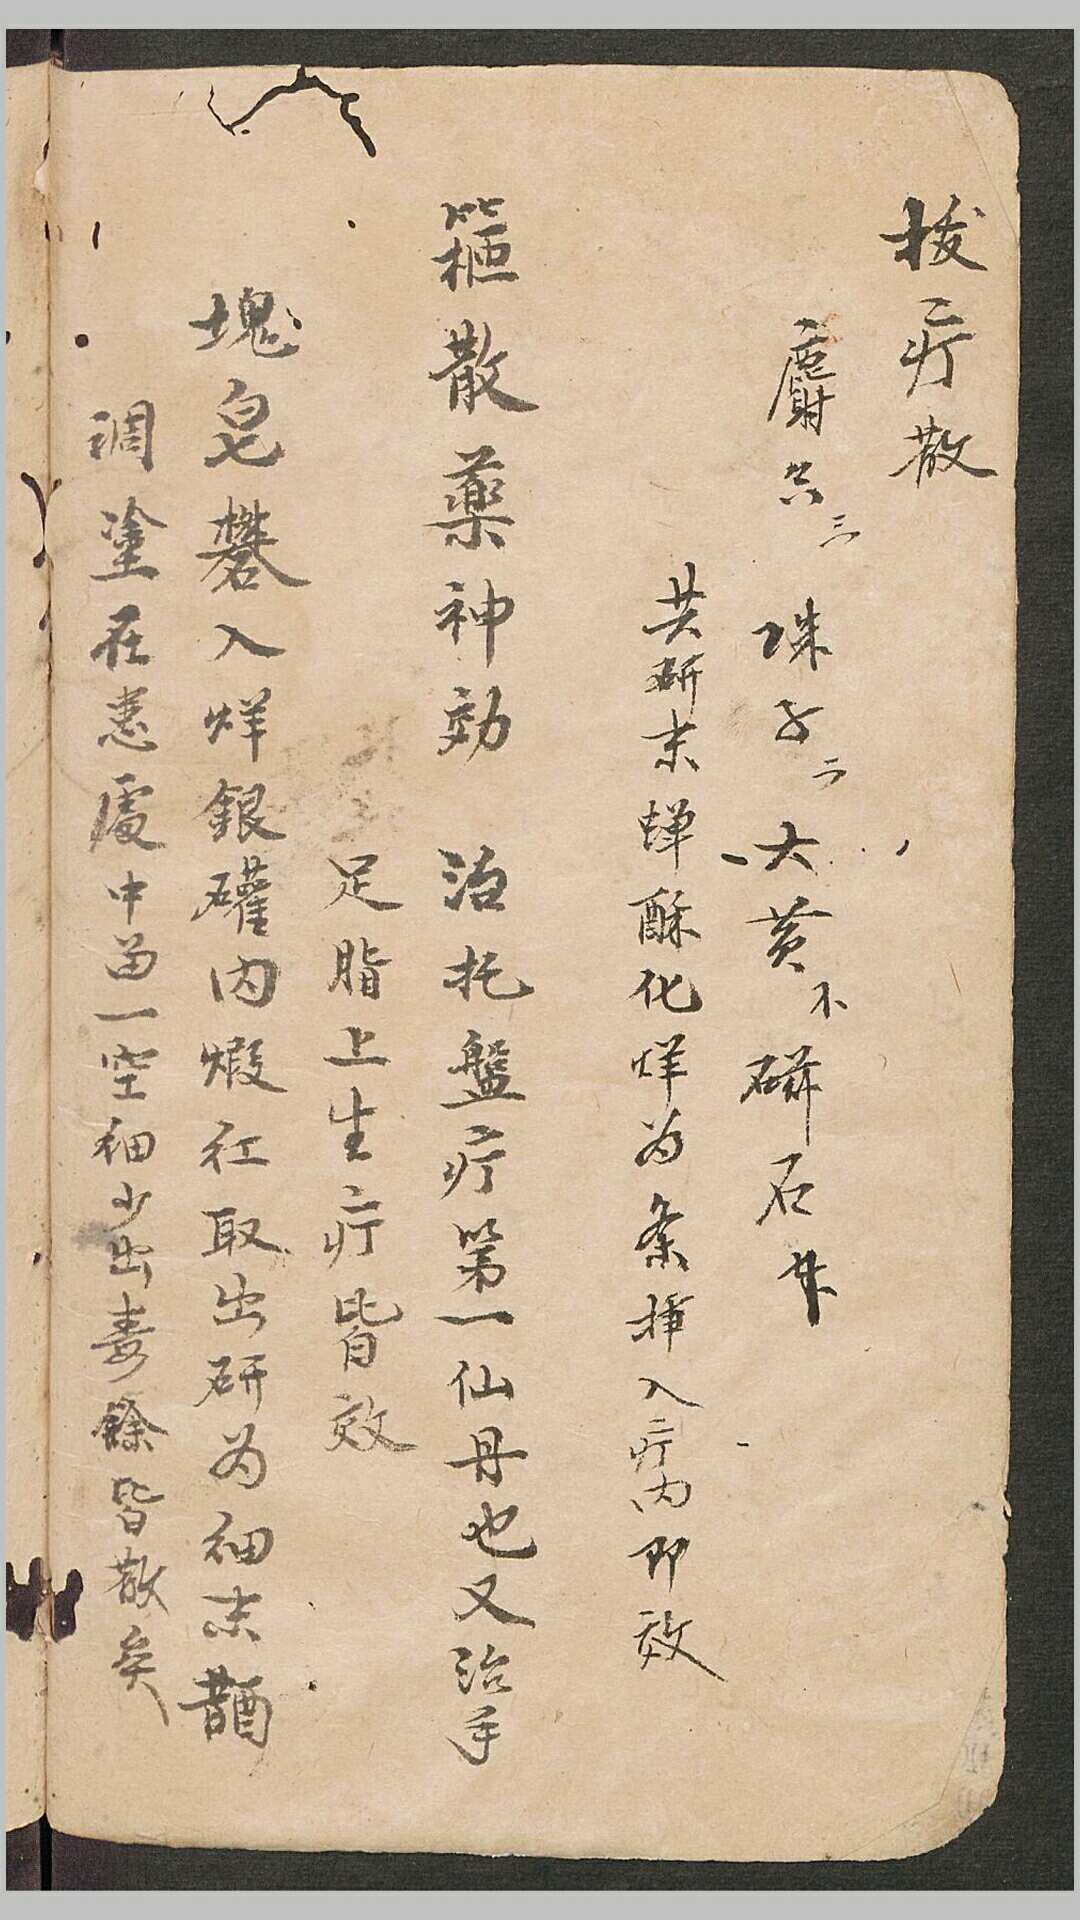 拔疔散
麝 三 珠子 二 大黄 石
共研末蟬酥化烊为条揷入疔内即效
箍散藥神効 治托盤疔第一仙丹也又治手
足脂上生疔皆效
塊皂礬入烊銀礶内煅红取出研为细末醋
调塗在患處中留一空细少出毒餘皆散矣